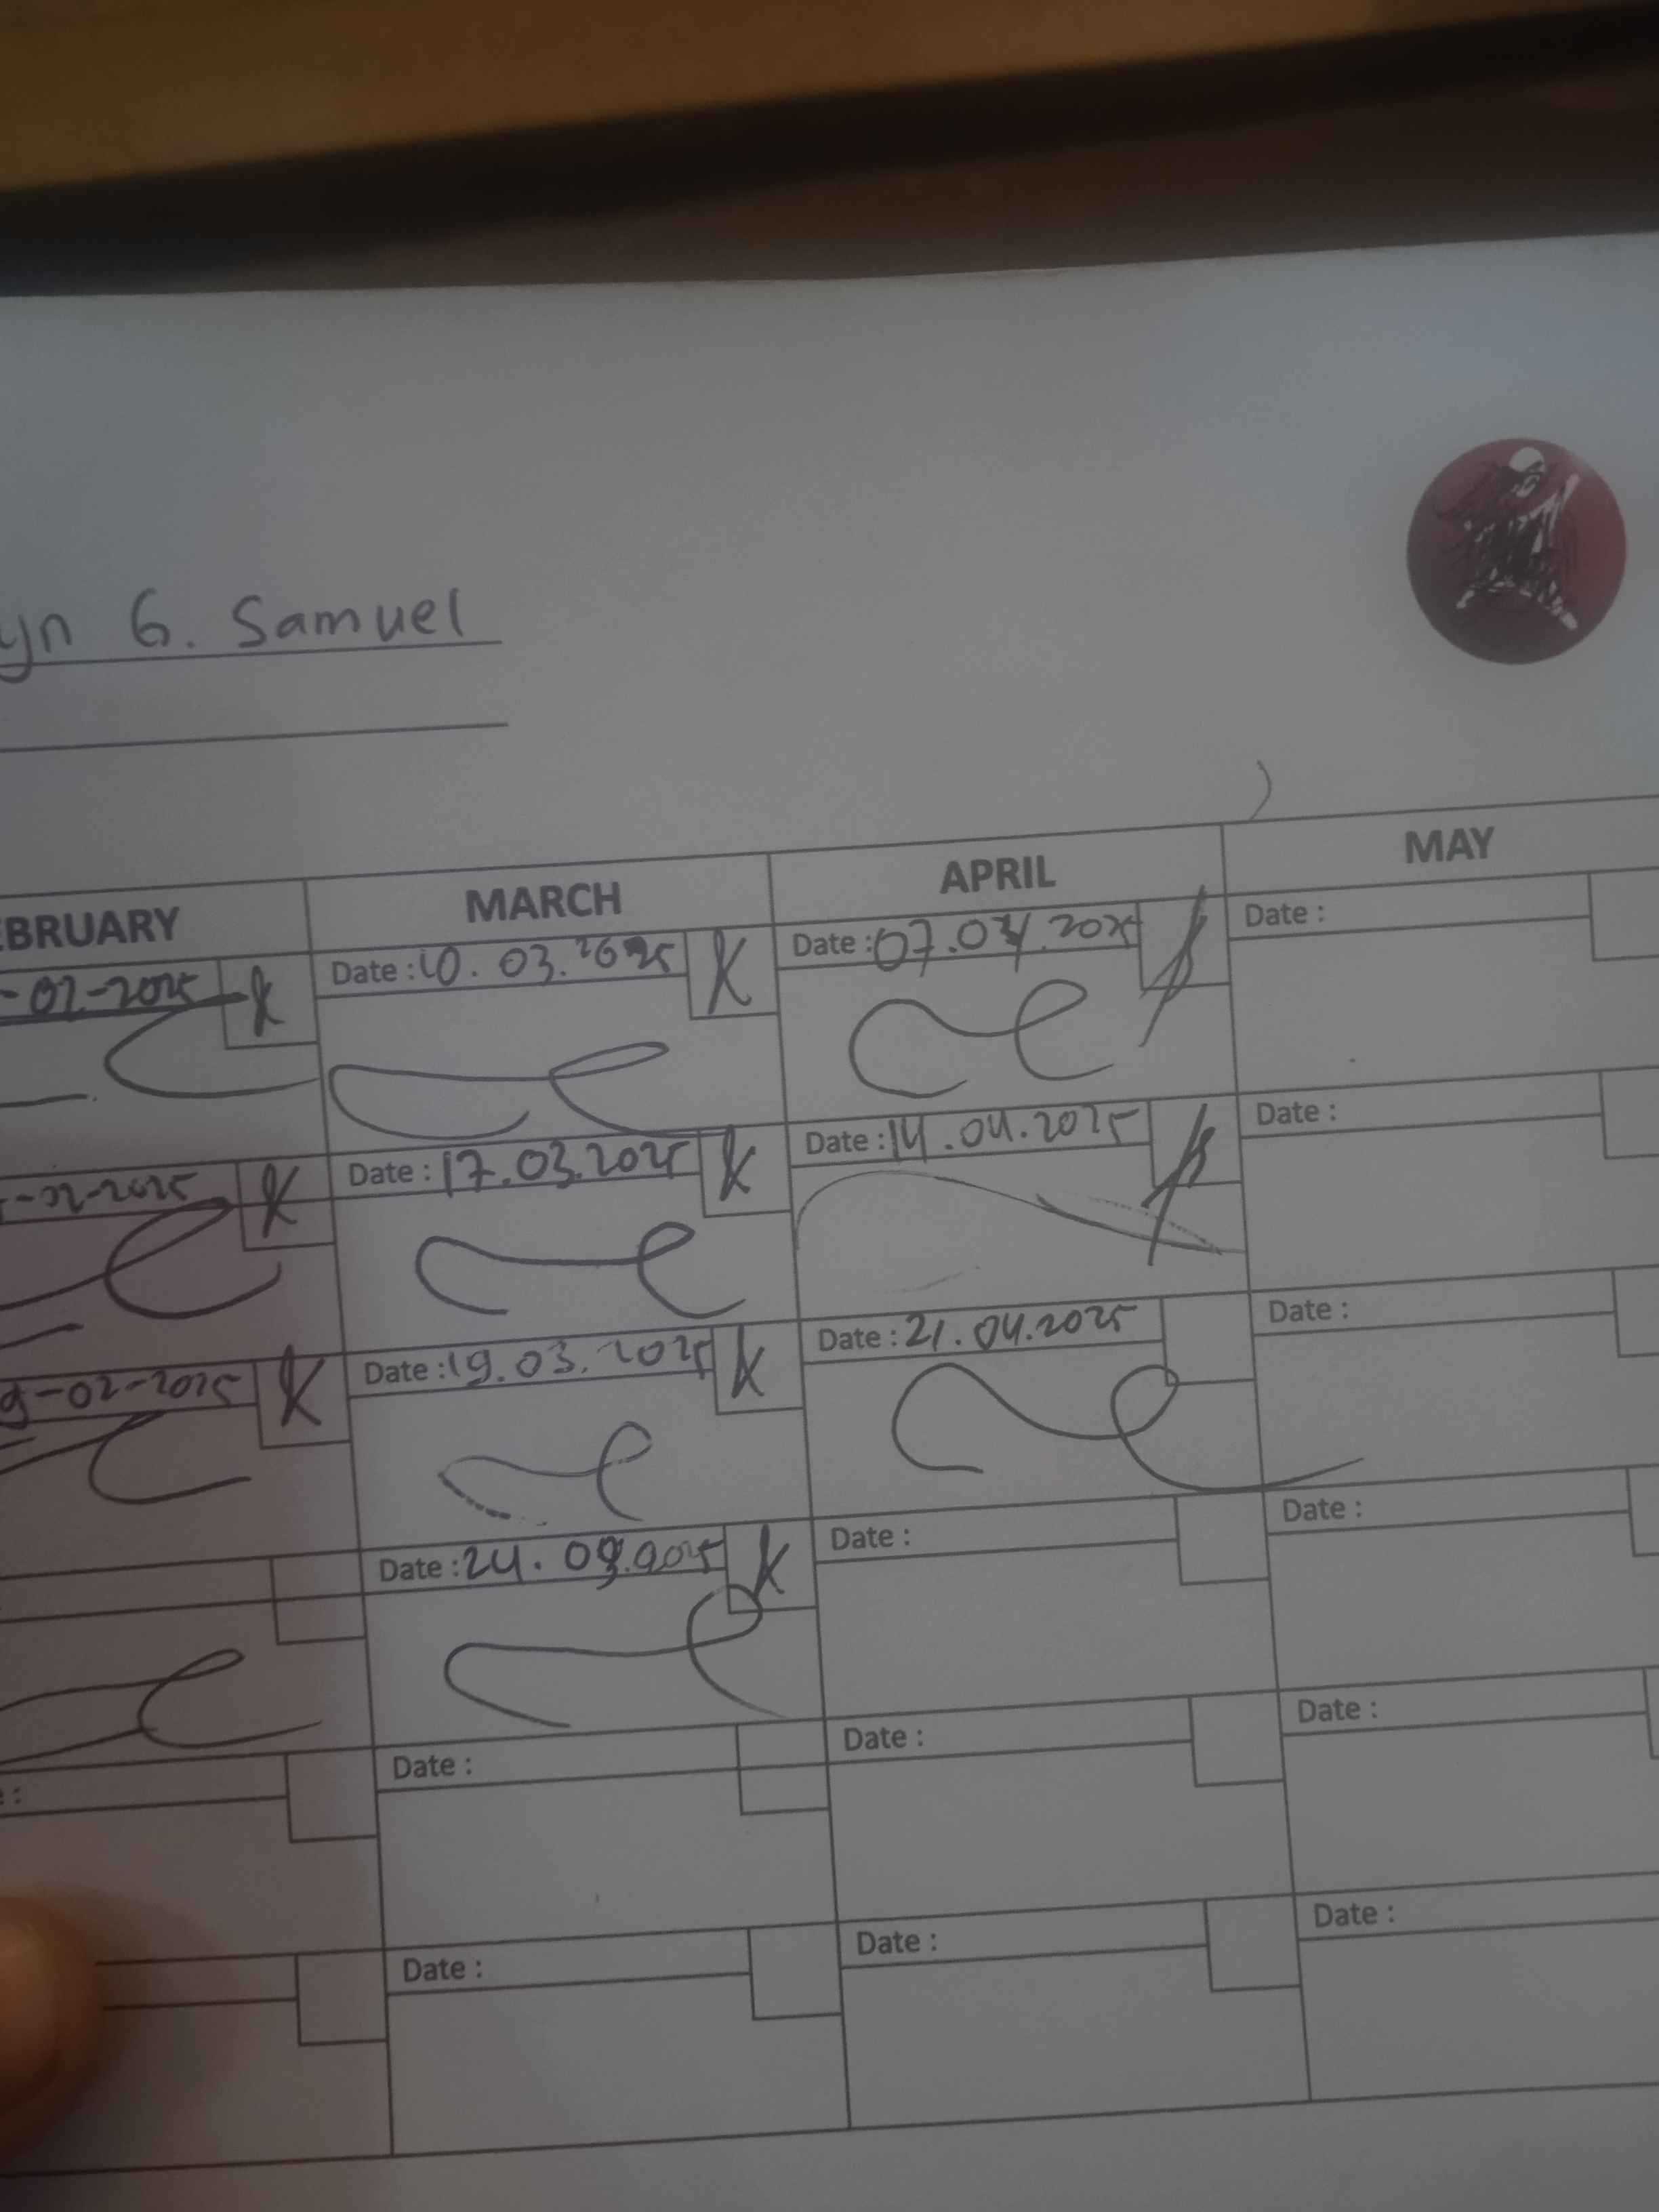 yn G. Samuel
EBRUARY MARCH APRIL MAY
-02-2025 K Date : 10.03.2025 K Date : 07.04.2025 Date :
-02-2025 K Date : 17.03.2025 K Date : 14.04.2025 Date :
9-02-2025 K Date : 19.03.2025 K Date : 21.04.2025 Date :
Date : 24.03.2025 K Date : Date :
e : Date : Date : Date :
Date : Date : Date :